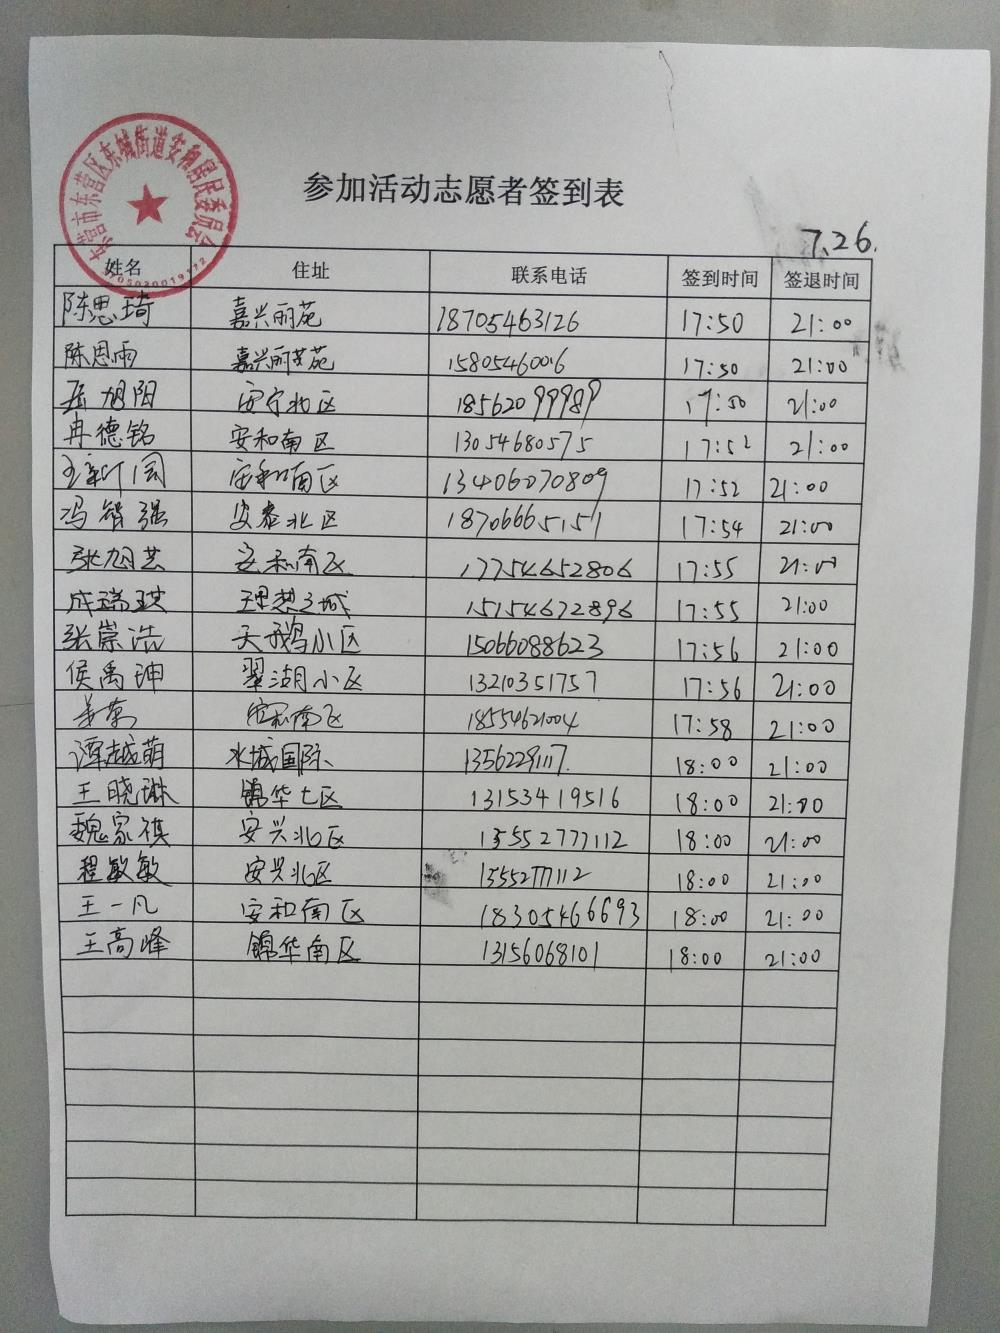 东营市东营区东城街道安和居民委员会
参加活动志愿者签到表
7.26.
姓名 住址 联系电话 签到时间 签退时间
陈思琦 嘉兴丽苑 18705463126 17:50 21:00
陈思雨 嘉兴丽苑 15805460016 17:50 21:00
岳旭阳 安宁北区 18562099989 17:50 21:00
冉德铭 安和南区 13054680575 17:52 21:00
安和南区 13406070809 17:52 21:00
冯智强 安泰北区 18706665151 17:54 21:00
张旭芸 安和南区 17754652806 17:55 21:00
成瑞琪 理想之城 15154672896 17:55 21:00
张崇浩 天鹅小区 15066088623 17:56 21:00
侯禹珅 翠湖小区 13210351757 17:56 21:00
安和南区 18554621004 17:58 21:00
谭越萌 水城国际 1356229117. 18:00 21:00
王晓琳 锦华七区 13153419516 18:00 21:00
魏家祺 安兴北区 135552777112 18:00 21:00
程敏敏 安兴北区 18:00 21:00
王一凡 安和南区 18305466693 18:00 21:00
王高峰 锦华南区 13156068101 18:00 21:00